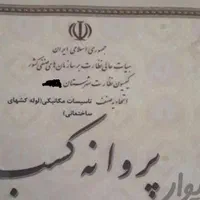 جمهوری اسلامی ایران
هیات عالی نظارت بر سازمان های صنفی کشور
کمیسیون نظارت شهرستان
اتحادیه صنف تاسیسات مکانیکی (لوله کشهای
ساختمانی)
پروانه کسب